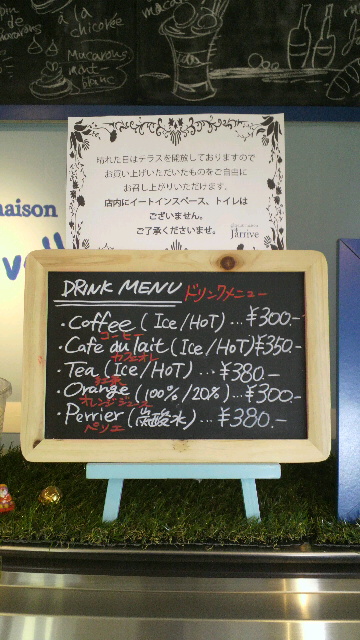 à la
chicorée
Macarons
mont
blanc
晴れた日はテラスを開放しておりますので
お買い上げいただいたものをご自由に
お召し上がりいただけます。
店内にイートインスペース、トイレは
ございません。
ご了承くださいませ。
j'arrive
maison
DRINK MENU ドリンクメニュー
・Coffee (Ice/HoT) ...¥300.-
コーヒー
・Cafe du lait (Ice/HoT)¥350.-
カフェオレ
・Tea (Ice/HoT) ...¥380.-
紅茶
・Orange (100%/20%) ...¥300.-
オレンジジュース
・Perrier (炭酸水) ...¥380.-
ペリエ